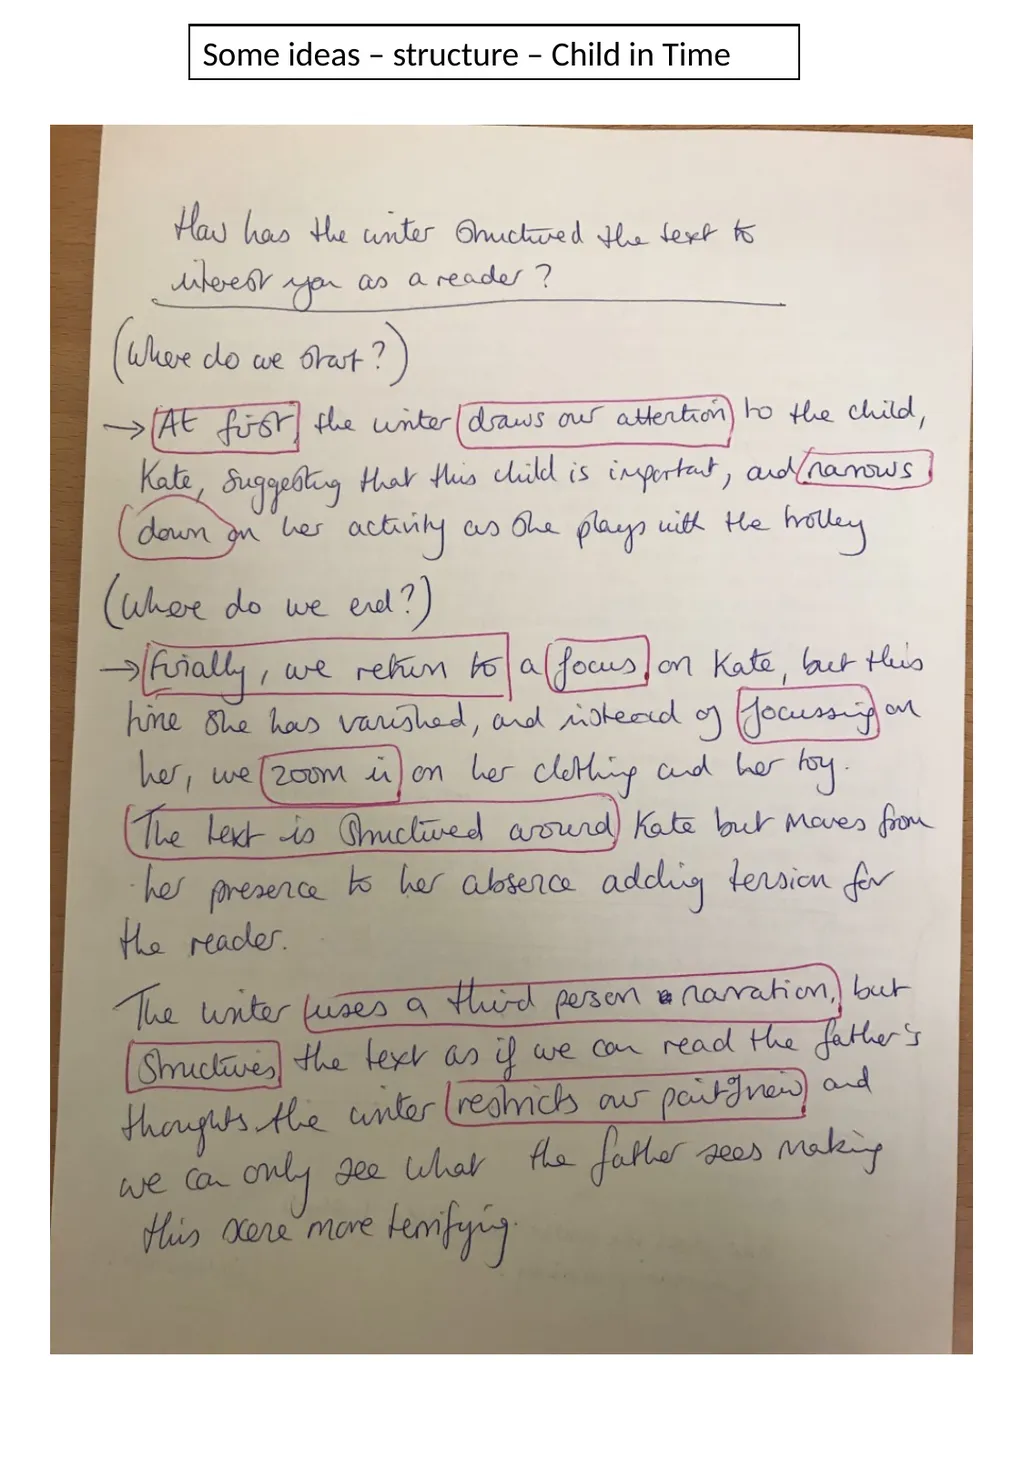 Some ideas – structure – Child in Time
How has the writer structured the text to
interest you as a reader?
(Where do we start?)
→ At first, the writer draws our attention to the child,
Kate, suggesting that this child is important, and narrows
down on her activity as she plays with the trolley
(Where do we end?)
→ Finally, we return to a focus on Kate, but this
time she has vanished, and instead of focussing on
her, we zoom in on her clothing and her toy.
The text is structured around Kate but moves from
her presence to her absence adding tension for
the reader.
The writer uses a third person narration, but
structures the text as if we can read the father's
thoughts, the writer restricts our point of view and
we can only see what the father sees making
this scene more terrifying.